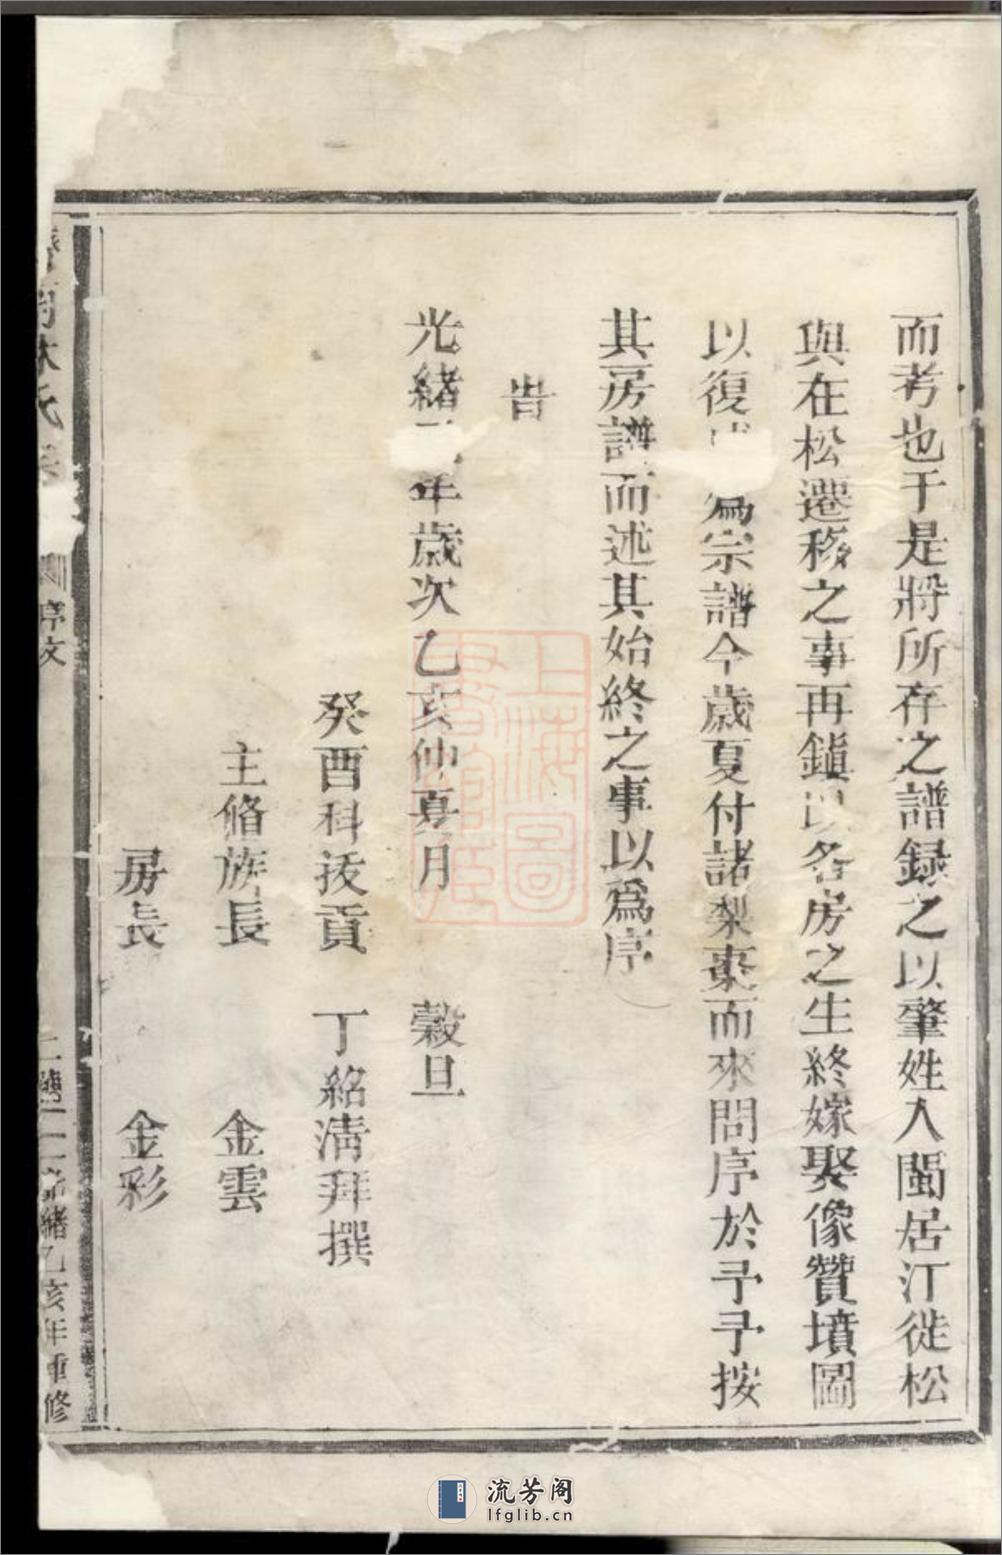 而考也于是將所存之譜録之以肇姓入閩居汀徙松
與在松遷移之事再鎮以名房之生終嫁娶像贊墳圖
以復 為宗譜今歳夏付諸梨棗而來問序於予予按
其房譜而述其始終之事以為序
旹
光緒 年歳次乙亥仲夏月 榖旦
癸酉科拔貢 丁紹清拜撰
主脩族長 金雲
房長 金彩
林氏 序文 緒乙亥年重修
上海圖書館藏
流芳阁
lfglib.cn